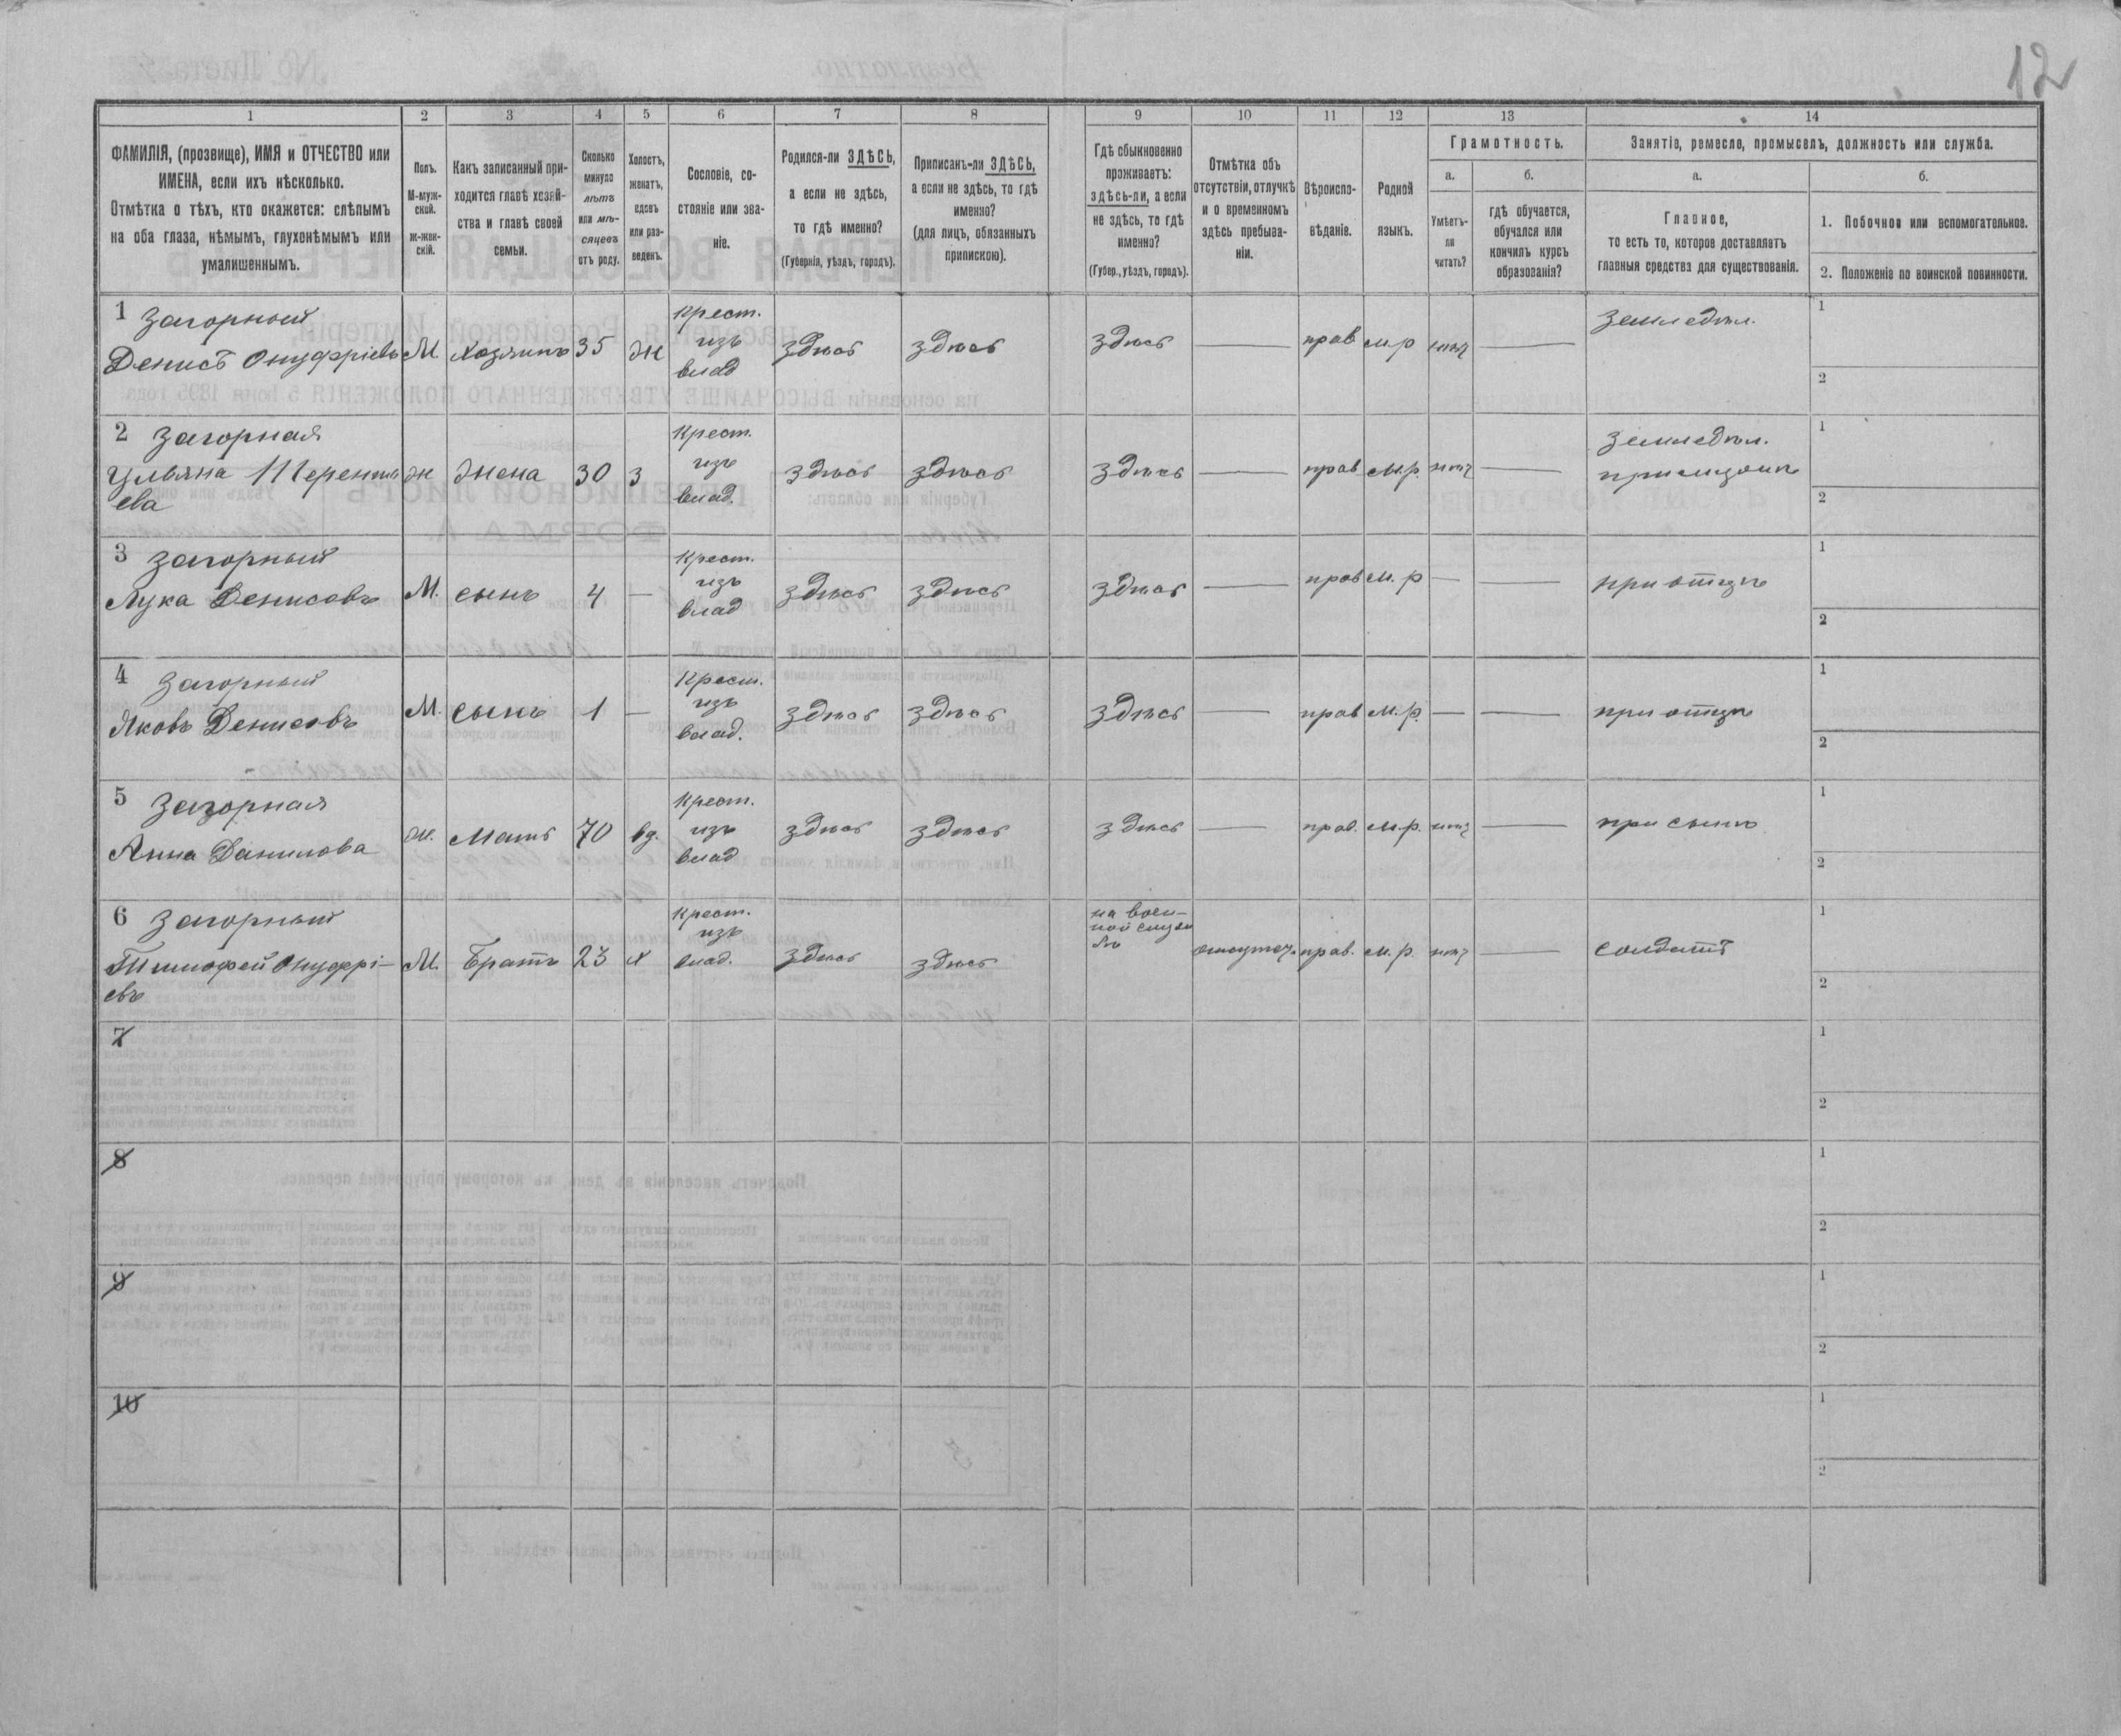 12
1 2 3 4 5 6 7 8 9 10 11 12 13 14
ФАМИЛІЯ, (прозвище), ИМЯ и ОТЧЕСТВО или
ИМЕНА, если ихъ нѣсколько.
Отмѣтка о тѣхъ, кто окажется: слѣпымъ
на оба глаза, нѣмымъ, глухонѣмымъ или
умалишеннымъ.
Полъ.
М-муж-
ской.
Ж-жен-
скій.
Какъ записанный при-
ходится главѣ хозяй-
ства и главѣ своей
семьи.
Сколько
минуло
лѣтъ
или мѣ-
сяцевъ
отъ роду.
Холостъ,
женатъ,
вдовъ
или раз-
веденъ.
Сословіе, со-
стояніе или зва-
ніе.
Родился-ли ЗДѢСЬ,
а если не здѣсь,
то гдѣ именно?
(Губернія, уѣздъ, городъ).
Приписанъ-ли ЗДѢСЬ,
а если не здѣсь, то гдѣ
именно?
(для лицъ, обязанныхъ
припискою).
Гдѣ обыкновенно
проживаетъ:
здѣсь-ли, а если
не здѣсь, то гдѣ
именно?
(Губер., уѣздъ, городъ).
Отмѣтка объ
отсутствіи, отлучкѣ
и о временномъ
здѣсь пребыва-
ніи.
Вѣроиспо-
вѣданіе.
Родной
языкъ.
Грамотность.
а.
Умѣетъ-
ли
читать?
б.
гдѣ обучается,
обучался или
кончилъ курсъ
образованія?
Занятіе, ремесло, промыселъ, должность или служба.
а.
Главное,
то есть то, которое доставляетъ
главныя средства для существованія.
б.
1. Побочное или вспомогательное.
2. Положеніе по воинской повинности.
1 Загорный
Денисъ Онуфріевъ М. Хозяинъ 35 ж Крест. изъ влад здѣсь здѣсь здѣсь — прав м.р нѣт — земледѣл. 1
2
2 Загорная
Ульяна Терентіе
ева ж жена 30 з Крест. изъ влад. здѣсь здѣсь здѣсь — прав м.р. нѣт — земледѣл. 1
2
3 Загорный
Лука Денисовъ М. сынъ 4 — Крест. изъ влад здѣсь здѣсь здѣсь — прав м.р — — при отцѣ 1
2
4 Загорный
Яковъ Денисовъ М. сынъ 1 — Крест. изъ влад. здѣсь здѣсь здѣсь — прав м.р. — — при отцѣ 1
2
5 Загорная
Анна Данилова ж. Мать 70 вд. Крест. изъ влад здѣсь здѣсь здѣсь — прав. м.р. нѣт — при сынѣ 1
2
6 Загорный
Тимофей Онуфрі-
евъ М. Братъ 23 х Крест. изъ влад. здѣсь здѣсь на воен-
ной служ
бѣ отсутст. прав. м.р. нѣт — солдатъ 1
2
7 1
2
8 1
2
9 1
2
10 1
2